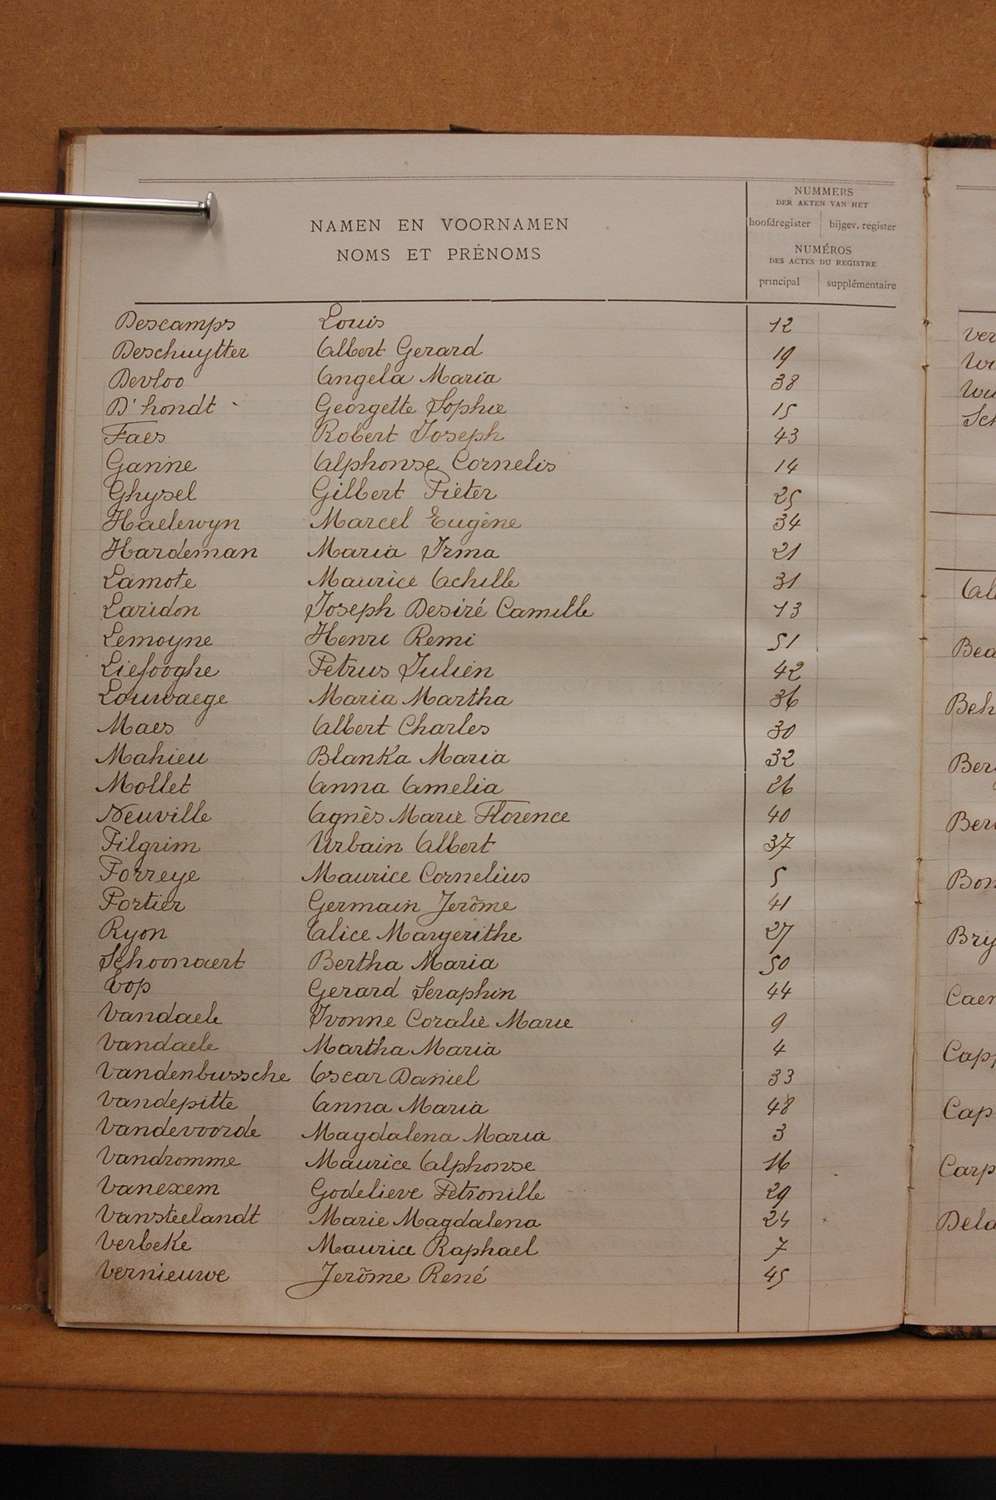 NAMEN EN VOORNAMEN
NOMS ET PRÉNOMS
NUMMERS
DER AKTEN VAN HET
hoofdregister bijgev. register
NUMÉROS
DES ACTES DU REGISTRE
principal supplémentaire
Descamps Louis 12
Deschuytter Albert Gerard 19
Devloo Angela Maria 38
D'hondt Georgette Sophie 15
Faes Robert Joseph 43
Ganne Alphonse Cornelis 14
Ghysel Gilbert Pieter 25
Haelewyn Marcel Eugène 34
Hardeman Maria Irma 21
Lamote Maurice Achille 31
Laridon Joseph Desiré Camille 13
Lemoyne Henri Remi 51
Liefooghe Petrus Julien 42
Louwaege Maria Martha 36
Maes Albert Charles 30
Mahieu Blanka Maria 32
Mollet Anna Amelia 26
Neuville Agnès Marie Florence 40
Pilgrim Urbain Albert 37
Porreye Maurice Cornelius 5
Portier Germain Jerôme 41
Ryon Alice Margerithe 27
Schoonaert Bertha Maria 50
Gerard Seraphin 44
Vandaele Ivonne Coralie Marie 9
Vandaele Martha Maria 4
Vandenbussche Oscar Daniel 33
Vandepitte Anna Maria 48
Vandevoorde Magdalena Maria 3
Vandromme Maurice Alphonse 16
Vanexem Godelieve Petronille 29
Vansteelandt Marie Magdalena 24
Verbeke Maurice Raphael 7
Vernieuwe Jerôme René 45